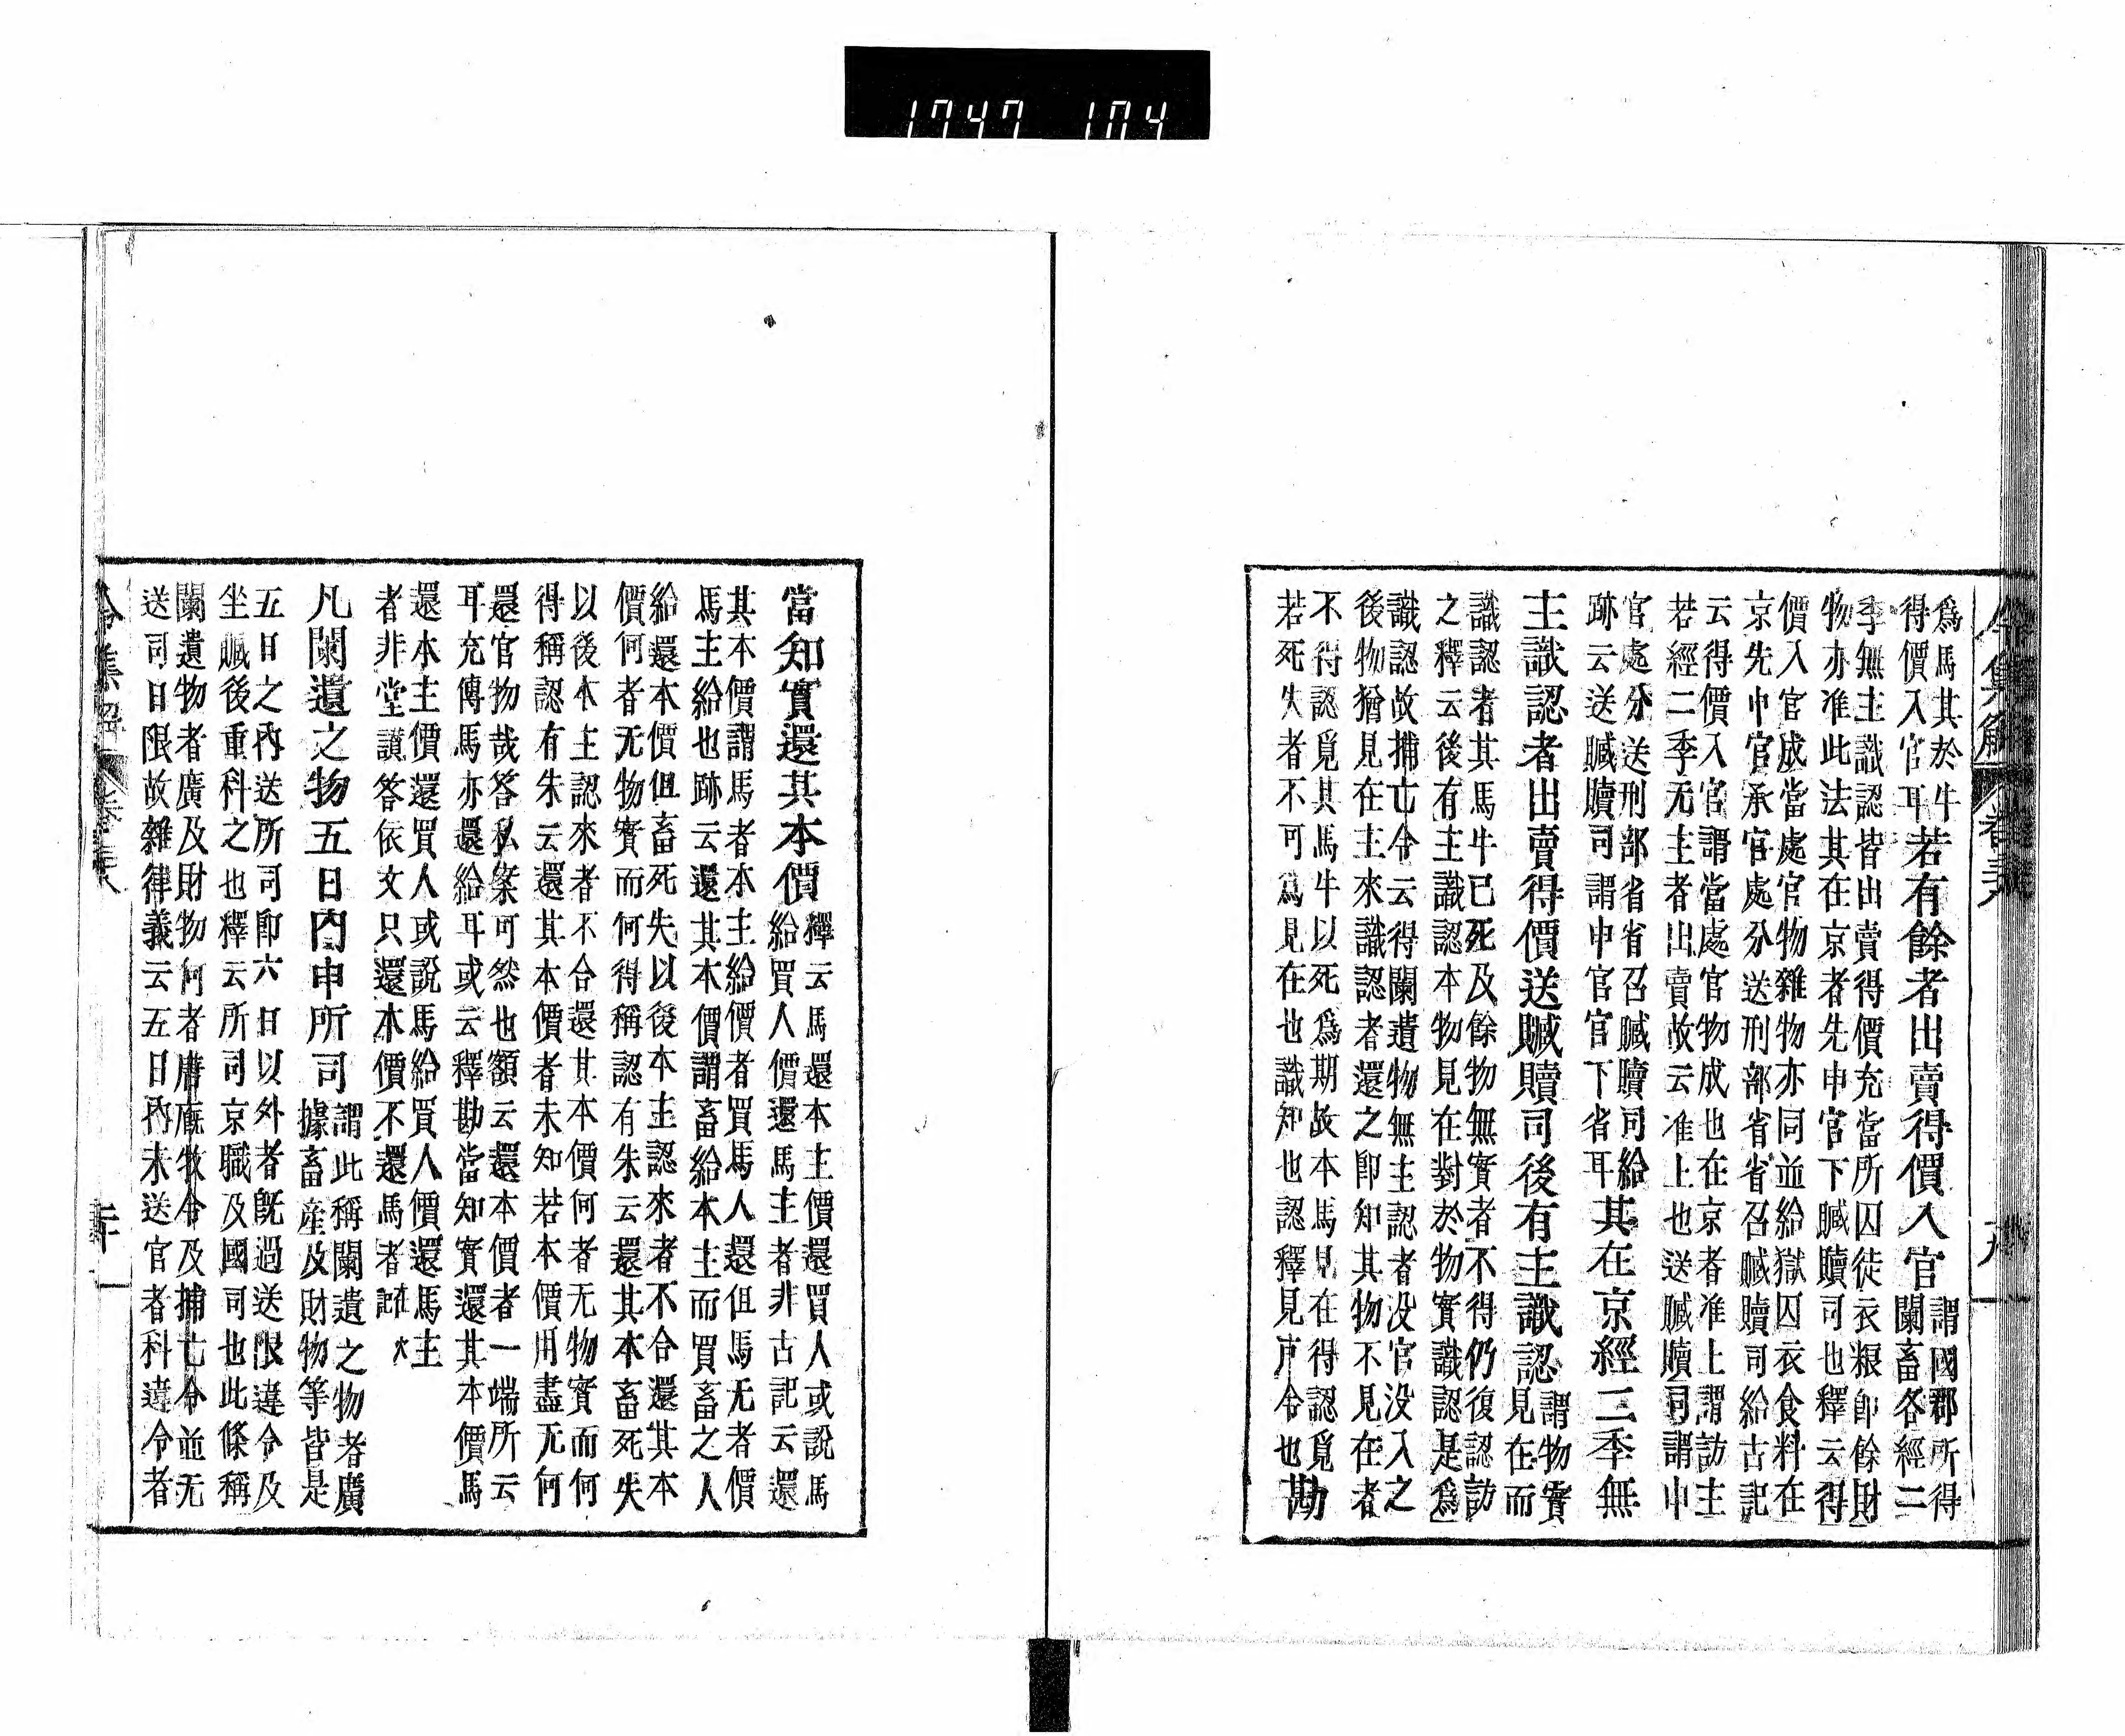 1747 104
令集解 卷三八 十九
爲馬其於牛
得價入官耳若有餘者出賣得價入官謂國郡所得
闌畜各經二
季無主識認皆出賣得價充當所囚徒衣粮卽餘財
物亦准此法其在京者先申官下贓贖司也釋云得
價入官成當處官物雜物亦同並給獄囚衣食料在
京先申官承官處分送刑部省省召贓贖司給古記
云得價入官謂當處官物成也在京者准上謂訪主
若經二季无主者出賣故云准上也送贓贖司謂申
官處分送刑部省省召贓贖司給
跡云送贓贖司謂申官官下省耳其在京經三季無
主識認者出賣得價送贓贖司後有主識認謂物實
見在而
識認者其馬牛已死及餘物無實者不得仍復認訪
之釋云後有主識認本物見在對於物實識認是爲
識認故捕亡令云得闌遺物無主認者没官没入之
後物猶見在主來識認者還之卽知其物不見在者
不得認覓其馬牛以死爲期故本馬見在得認覓
若死失者不可爲見在也識知也認釋見戶令也勘
當知實還其本價釋云馬還本主價還買人或說馬
給買人價還馬主者非古記云還
其本價謂馬者本主給價者買馬人還但馬无者價
馬主給也跡云還其本價謂畜給本主而買畜之人
給還本價但畜死失以後本主認來者不合還其本
價何者无物實而何得稱認有朱云還其本畜死失
以後本主認來者不合還其本價何者无物實而何
得稱認有朱云還其本價者未知若本價用盡无何
還官物哉答私案可然也額云還本價者一端所云
耳充傳馬亦還給耳或云釋勘當知實還其本價馬
還本主價還買人或說馬給買人價還馬主
者非堂讃答依文只還本價不還馬者
凡闌遺之物五日內申所司謂此稱闌遺之物者廣
據畜產及財物等皆是
五日之內送所司卽六日以外者既過送限違令及
坐贓後重科之也釋云所司京職及國司也此條稱
闌遺物者廣及財物何者厩牧令及捕亡令並无
送司日限故雜律義云五日內未送官者科違令者
令集解 卷三八 二十